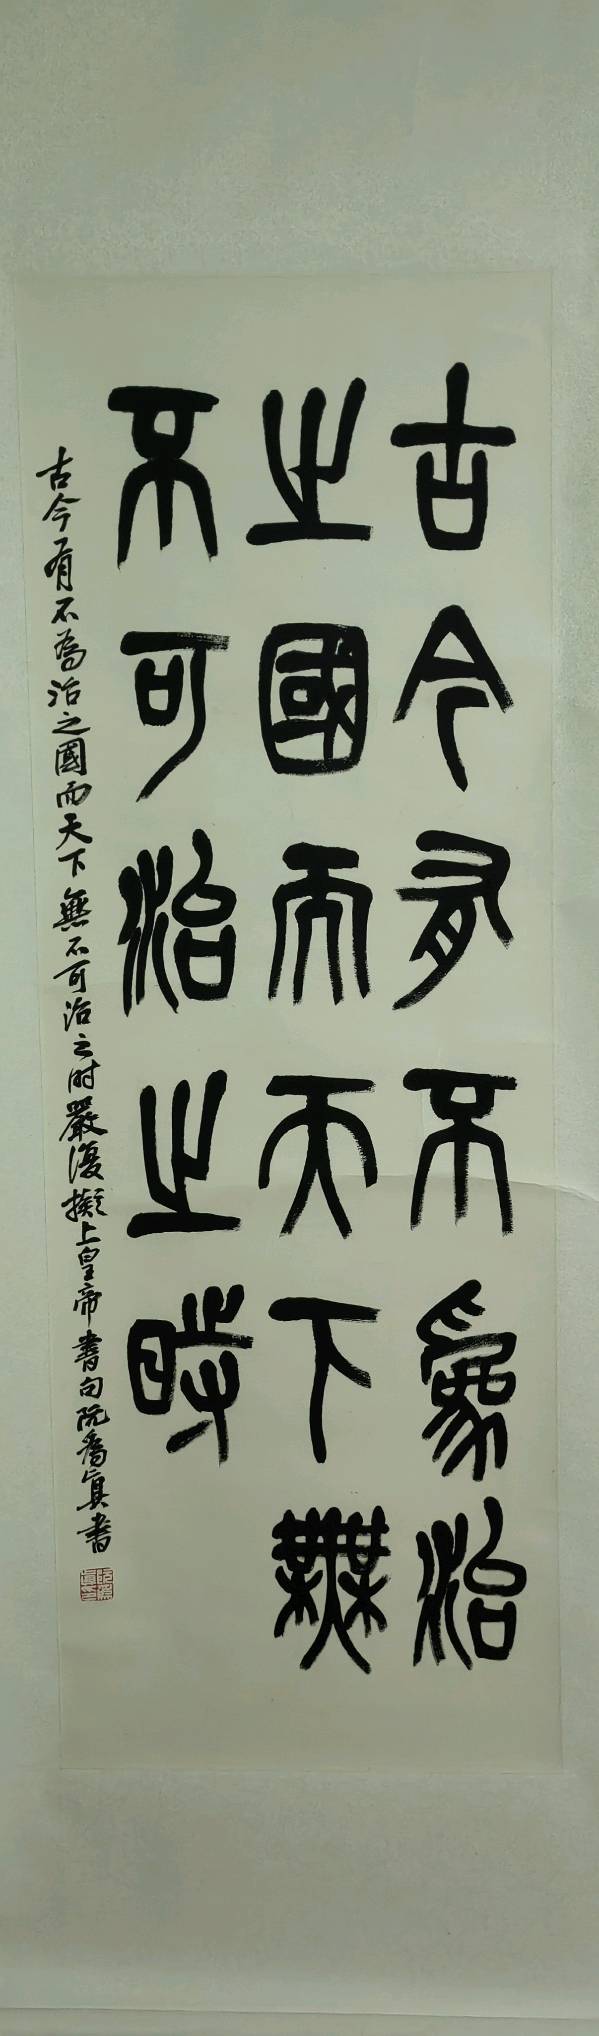 古今有不為治
之國而天下無
不可治之時
古今有不為治之國而天下無不可治之時嚴復擬上皇帝書句阮為真書